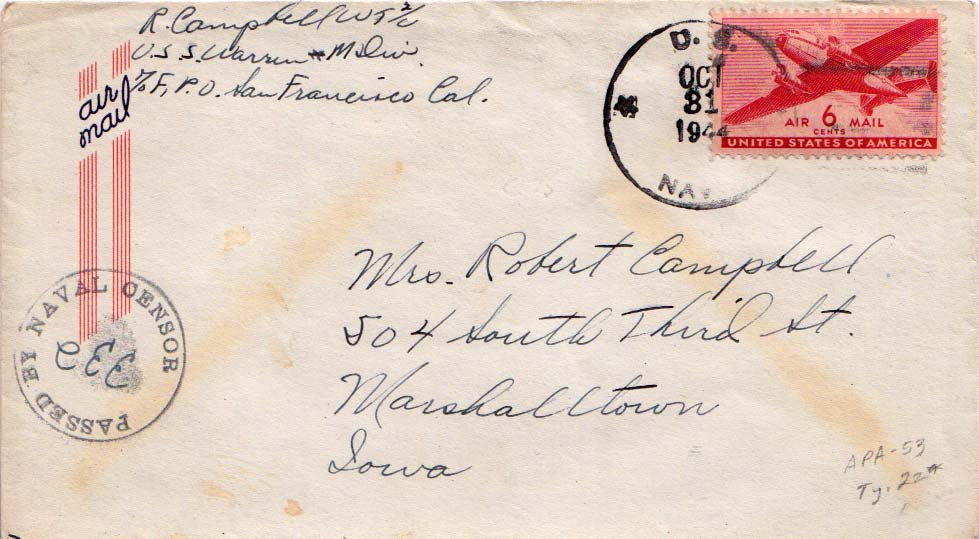 R. Campbell WT 2/c
U.S.S. Warren M Div.
℅ F.P.O. San Francisco Cal.
air
mail
U. S.
OCT
31
1944
NAV
AIR 6 MAIL
CENTS
UNITED STATES OF AMERICA
Mrs. Robert Campbell
504 South Third St.
Marshalltown
Iowa
PASSED BY NAVAL CENSOR
APA-53
Ty. 22*